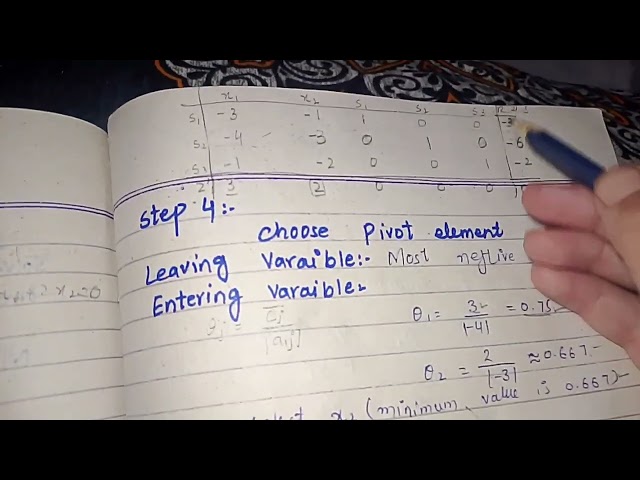 x₁ x₂ s₁ s₂ s₃
s₁ -3 -1 1 0 0 -3
s₂ -4 -3 0 1 0 -6
s₃ -1 -2 0 0 1 -2
z 3 2 0 0 0
Step 4:-
choose pivot element
Leaving Varaible:- Most neftive
Entering varaible
θ₁ = 3/|-4| = 0.75
θj = cj/|aij|
θ₂ = 2/|-3| ≈ 0.667
x₂ (minimum value is 0.667)